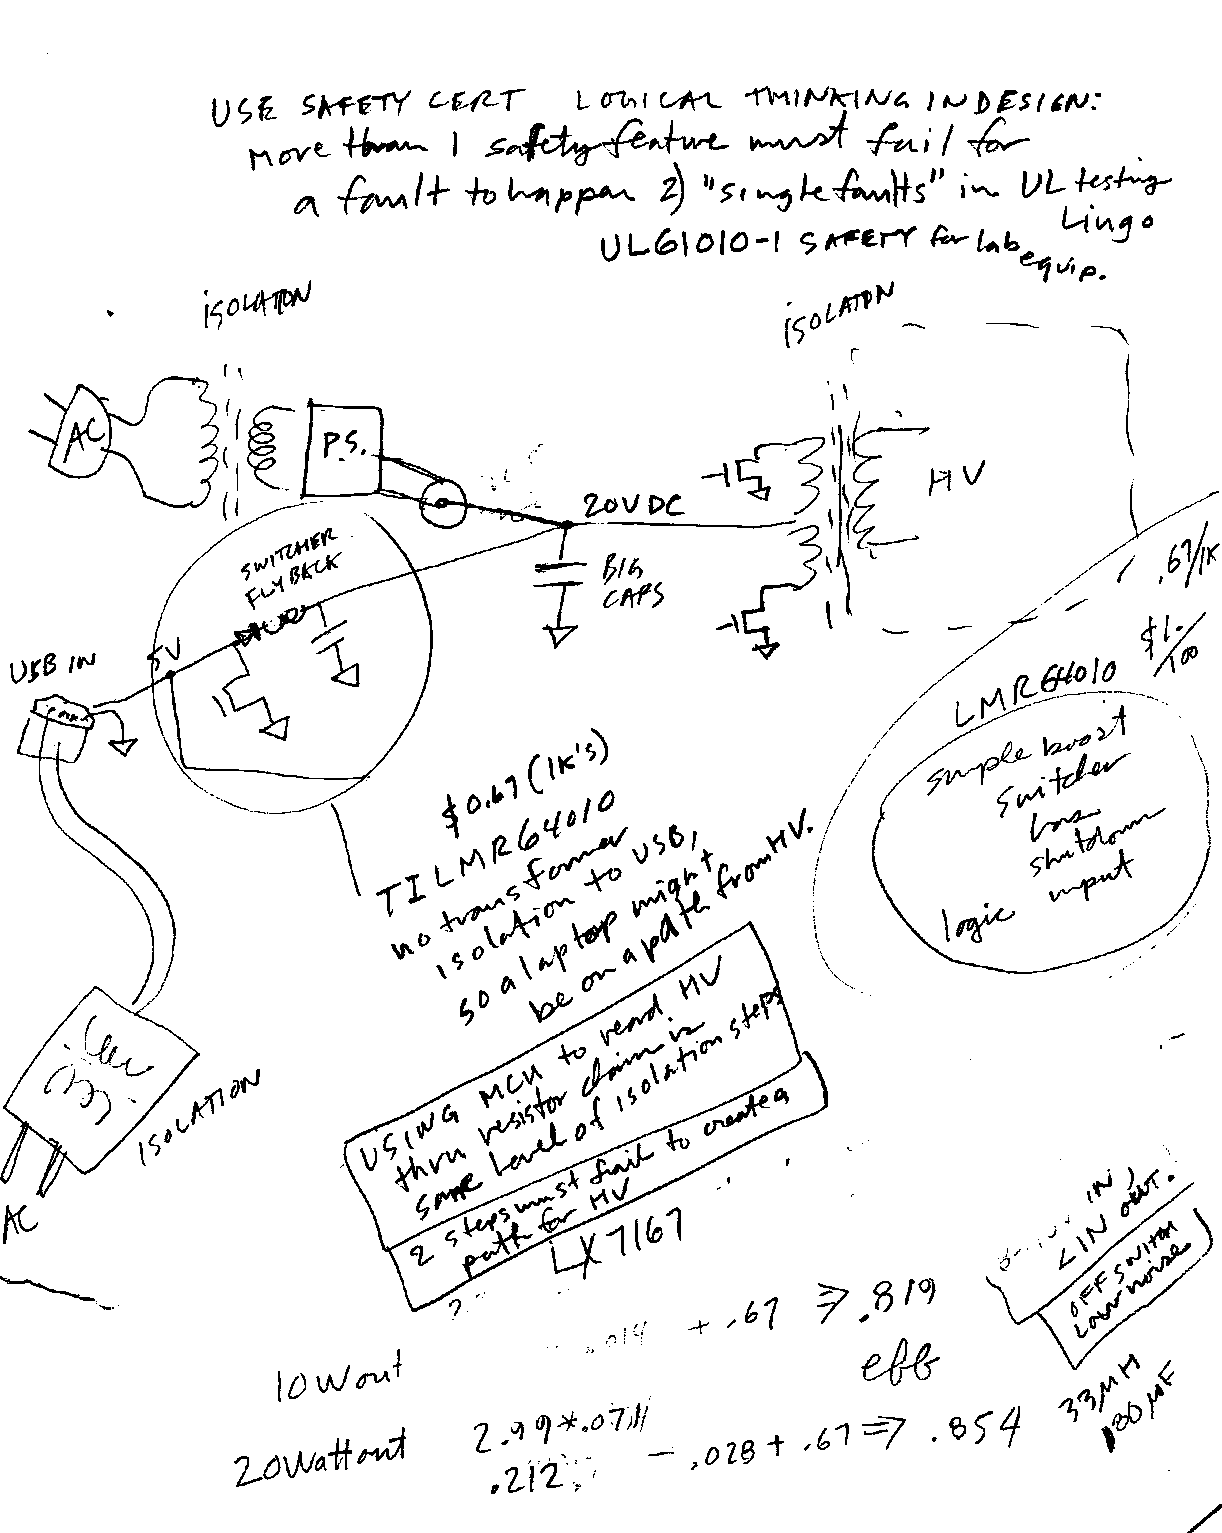 USE SAFETY CERT LOGICAL THINKING IN DESIGN:
more than 1 safety feature must fail for
a fault to happen 2) "single faults" in UL testing
Lingo
UL61010-1 SAFETY for lab
equip.
ISOLATION
ISOLATON
AC
P.S.
20VDC
HV
BIG
CAPS
SWITCHER
FLYBACK
5V
USB IN
.67/1K
$1./100
LMR64010
simple boost
switcher
has
shutdown
input
logic
$0.67 (1K's)
TI LMR64010
no transformer
isolation to USB,
so a laptop might
be on a path from HV.
USING MCU to read HV
thru resistor chain is
same level of isolation steps
2 steps must fail to create a
path for HV
LX7167
ISOLATION
AC
IN,
OUT.
OFF SWITCH
LOW NOISE
10W out
.014 + .67 ⇒ .819
eff
20Watt out
2.99*.0711
.212
- .028 + .67 ⇒ .854
33µH